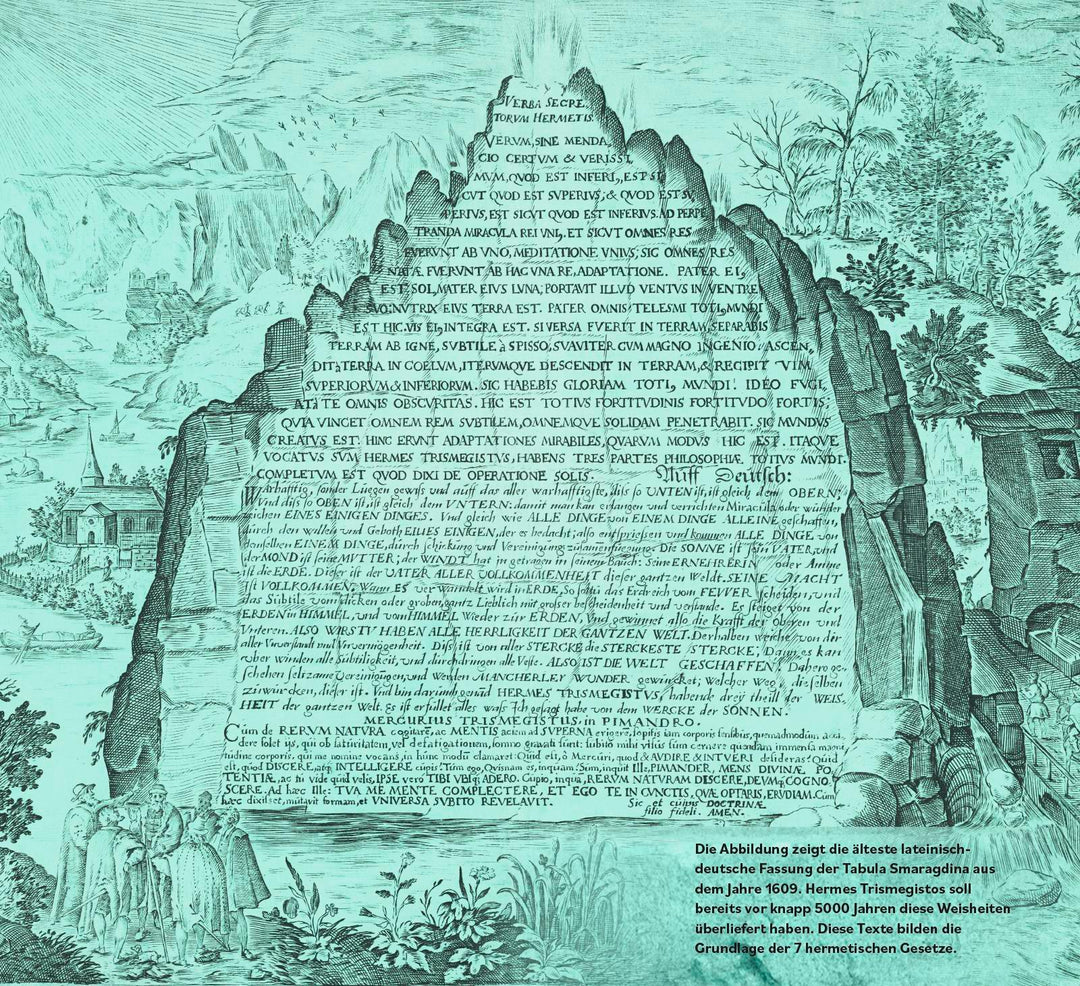 VERBA SECRE,
TORVM HERMETIS
VERVM, SINE MENDA,
CIO CERTVM & VERISSI,
MVM, QVOD EST INFERI,, EST SI
CVT QVOD EST SVPERIVS, & QVOD EST SV,
PERIVS, EST SICVT QVOD EST INFERIVS. AD PERPE
TRANDA MIRACVLA REI VNI,. ET SICVT OMNES RES
FVERVNT AB VNO, MEDITATIONE VNIVS; SIC OMNES RES
NATÆ FVERVNT AB HAC VNA RE, ADAPTATIONE. PATER EI,
EST SOL, MATER EIVS LVNA; PORTAVIT ILLVD VENTVS IN VENTRE
SVO. NVTRIX EIVS TERRA EST. PATER OMNIS TELESMI TOTI, MVNDI
EST HIC. VIS EI, INTEGRA EST. SI VERSA FVERIT IN TERRAM, SEPARABIS
TERRAM AB IGNE, SVBTILE à SPISSO, SVAVITER CVM MAGNO INGENIO. ASCEN,
DIT à TERRA IN COELVM, ITERVMQVE DESCENDIT IN TERRAM, & RECIPIT VIM
SVPERIORVM & INFERIORVM. SIC HABEBIS GLORIAM TOTI, MVNDI. IDEO FVGI,
AT à TE OMNIS OBSCVRITAS. HIC EST TOTIVS FORTITVDINIS FORTITVDO FORTIS:
QVIA VINCET OMNEM REM SVBTILEM, OMNEMQVE SOLIDAM PENETRABIT. SIC MVNDVS
CREATVS EST. HINC ERVNT ADAPTATIONES MIRABILES, QVARVM MODVS HIC EST. ITAQVE
VOCATVS SVM HERMES TRISMEGISTVS, HABENS TRES PARTES PHILOSOPHIÆ TOTIVS MVNDI.
COMPLETVM EST QVOD DIXI DE OPERATIONE SOLIS. Auff Deutsch:
Warhafftig, sonder Luegen gewiss und auff das aller warhafftigste, diss so UNTEN ist, ist gleich dem OBERN;
Vnd diss so OBEN ist, ist gleich dem VNTERN: damit man kan erlangen und verrichten Miracula oder wunder
zeichen EINES EINIGEN DINGES. Vnd gleich wie ALLE DINGE von EINEM DINGE ALLEINE geschaffen,
durch den willen und Geboth EINES EINIGEN, der es bedacht; also entspriessen und kommen ALLE DINGE von
demselben EINEM DINGE, durch schickung und Vereinigung zusammenfuegung. Die SONNE ist sein VATER, und
der MOND ist seine MUTTER; der WINDT hat in getragen in seinem Bauch: Seine ERNEHRERIN oder Amme
ist die ERDE. Dieser ist der VATER ALLER VOLLKOMMENHEIT dieser gantzen Weldt. SEINE MACHT
ist VOLLKOMMEN; Wann ES verwandelt wird in ERDE, So soltu das Erdreich vom FEWER scheiden, und
das Subtile vom dicken oder groben, gantz Lieblich mit grosser bescheidenheit und verstande. Es steiget von der
ERDEN in HIMMEL, und vom HIMMEL Wieder zur ERDEN, Vnd gewinnet also die Krafft der obern und
Vnteren. ALSO WIRSTV HABEN ALLE HERRLIGKEIT DER GANTZEN WELT. Derhalben weiche von dir
aller Vnverstandt und Vnvermögenheit. Diss ist von aller STERCKE die STERCKESTE STERCKE; Dann es kan
uber winden alle Subtiligkeit, und durchdringen alle Veste. ALSO IST DIE WELT GESCHAFFEN; Dahero ge,
schehen seltzame Vereinigungen, und Werden MANCHERLEY WUNDER gewürcket; Welcher Weg, die selben
zuwürcken, dieser ist. Vnd bin darumb genand HERMES TRISMEGISTVS, habende drey theill der WEIS,
HEIT der gantzen Welt. Es ist erfüllet alles wass Ich gesagt habe von dem WERCKE der SONNEN.
MERCURIUS TRISMEGISTUS. in PIMANDRO.
Cùm de RERVM NATVRA cogitarē, ac MENTIS aciem ad SVPERNA erigerē, sopitis iam corporis sensibus, quemadmodum acci,
dere solet ijs, qui ob saturitatem, vel defatigationem, somno gravati sunt: subitò mihi visus sum cernere quendam immensa magni
tudine corporis, qui me nomine vocans, in hunc modū clamaret: Quid est, ô Mercuri, quod & AVDIRE & INTVERI desideras? Quid
quod DISCERE, atq; INTELLIGERE cupis? Tum ego, Quisnam es, inquam? Sum, inquit Ille, PIMANDER, MENS DIVINÆ PO,
TENTIÆ, ac tu vide quid velis, IPSE verò TIBI VBIQ; ADERO. Cupio, inquā, RERUM NATURAM DISCERE, DEVMQ; COGNO,
SCERE. Ad hæc Ille: TVA ME MENTE COMPLECTERE, ET EGO TE IN CVNCTIS, QVÆ OPTARIS, ERVDIAM. Cum
hæc dixisset, mutavit formam, et UNIVERSA SVBITO REVELAVIT.
Sic et cuius DOCTRINÆ
filio fideli. AMEN.
Die Abbildung zeigt die älteste lateinisch-
deutsche Fassung der Tabula Smaragdina aus
dem Jahre 1609. Hermes Trismegistos soll
bereits vor knapp 5000 Jahren diese Weisheiten
überliefert haben. Diese Texte bilden die
Grundlage der 7 hermetischen Gesetze.